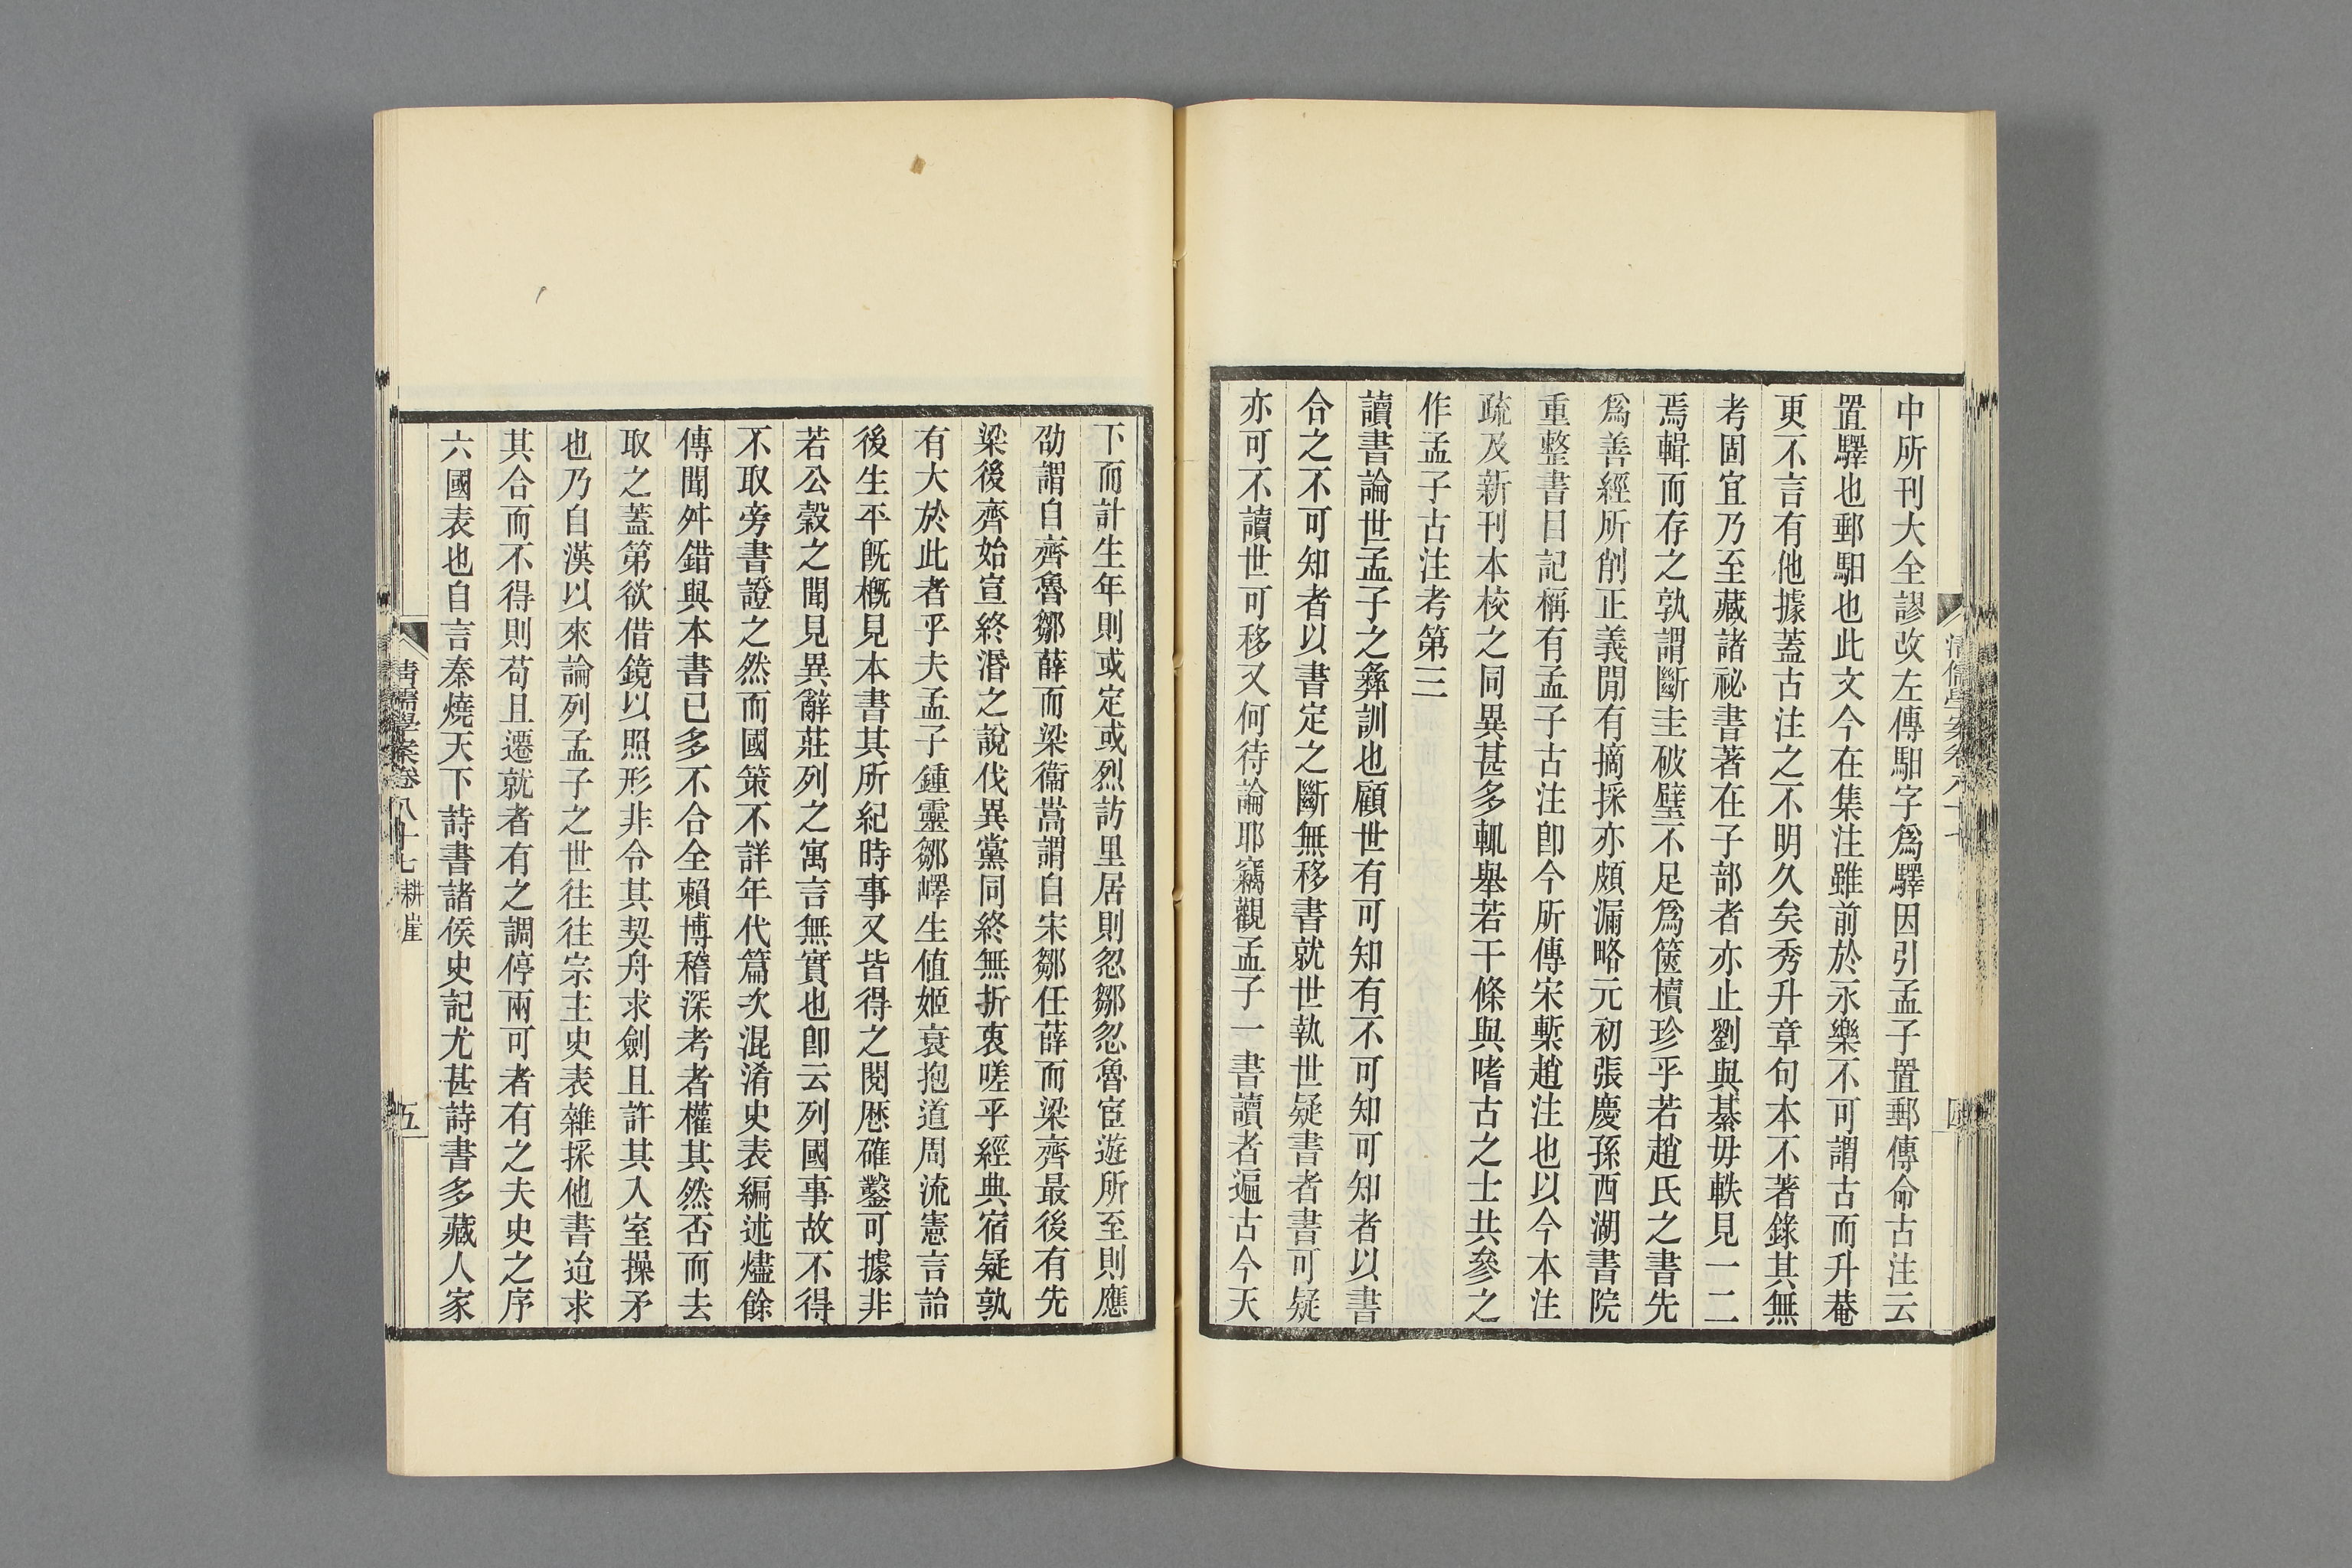 中所刊大全謬改左傳馹字爲驛因引孟子置郵傳命古注云
置驛也郵馹也此文今在集注雖前於永樂不可謂古而升菴
更不言有他據蓋古注之不明久矣秀升章句本不著錄其無
考固宜乃至藏諸祕書著在子部者亦止劉與綦毋軼見一二
焉輯而存之孰謂斷圭破璧不足爲篋櫝珍乎若趙氏之書先
爲善經所削正義閒有摘採亦頗漏略元初張慶孫西湖書院
重整書目記稱有孟子古注卽今所傳宋槧趙注也以今本注
疏及新刊本校之同異甚多輒舉若干條與嗜古之士共參之
作孟子古注考第三
讀書論世孟子之彝訓也顧世有可知有不可知可知者以書
合之不可知者以書定之斷無移書就世執世疑書者書可疑
亦可不讀世可移又何待論耶竊觀孟子一書讀者遍古今天
清儒學案卷八十七
四
下而計生年則或定或烈訪里居則忽鄒忽魯宦遊所至則應
劭謂自齊魯鄒薛而梁衞嵩謂自宋鄒任薛而梁齊最後有先
梁後齊始宣終湣之說伐異黨同終無折衷嗟乎經典宿疑孰
有大於此者乎夫孟子鍾靈鄒嶧生値姬衰抱道周流憲言詒
後生平旣槪見本書其所紀時事又皆得之閱歷確鑿可據非
若公穀之聞見異辭莊列之寓言無實也卽云列國事故不得
不取旁書證之然而國策不詳年代篇次混淆史表編述燼餘
傳聞舛錯與本書已多不合全賴博稽深考者權其然否而去
取之蓋第欲借鏡以照形非令其契舟求劍且許其入室操矛
也乃自漢以來論列孟子之世往往宗主史表雜採他書迨求
其合而不得則苟且遷就者有之調停兩可者有之夫史之序
六國表也自言秦燒天下詩書諸侯史記尤甚詩書多藏人家
清儒學案卷八十七 耕崖
五